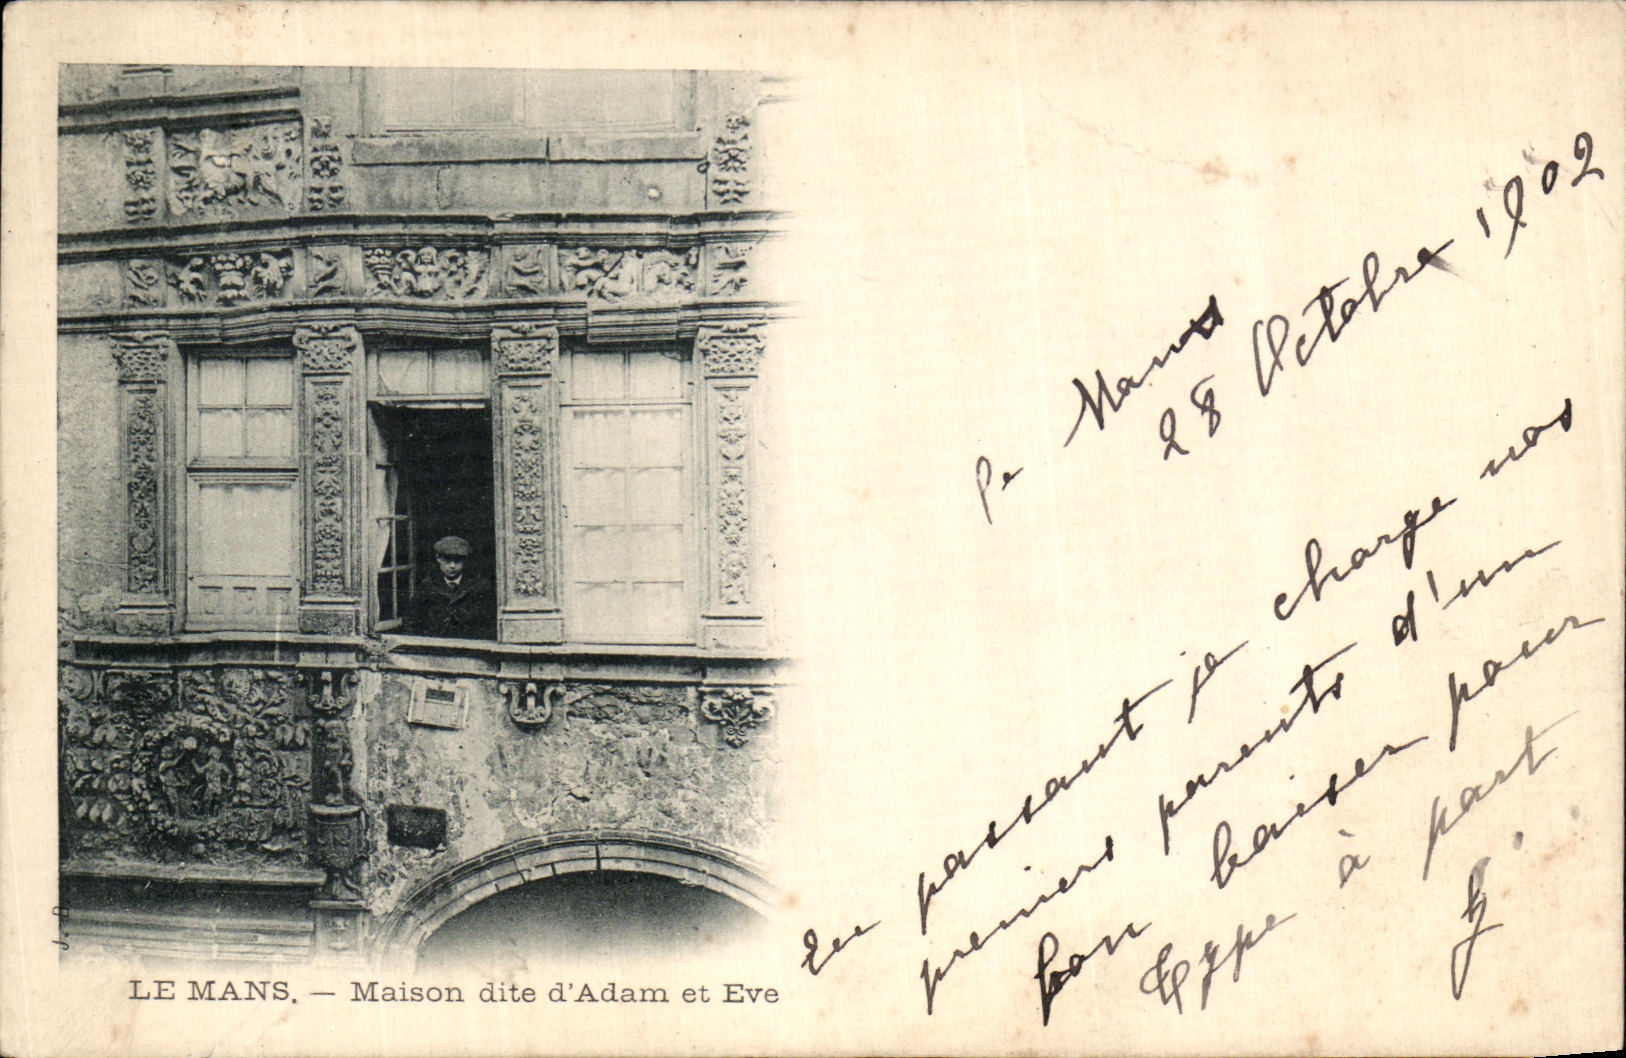 Le Mans
28 Octobre 1902
En passant je charge nos
premiers parents d'un
bon baiser pour
Type à part
J. B
LE MANS. — Maison dite d'Adam et Eve